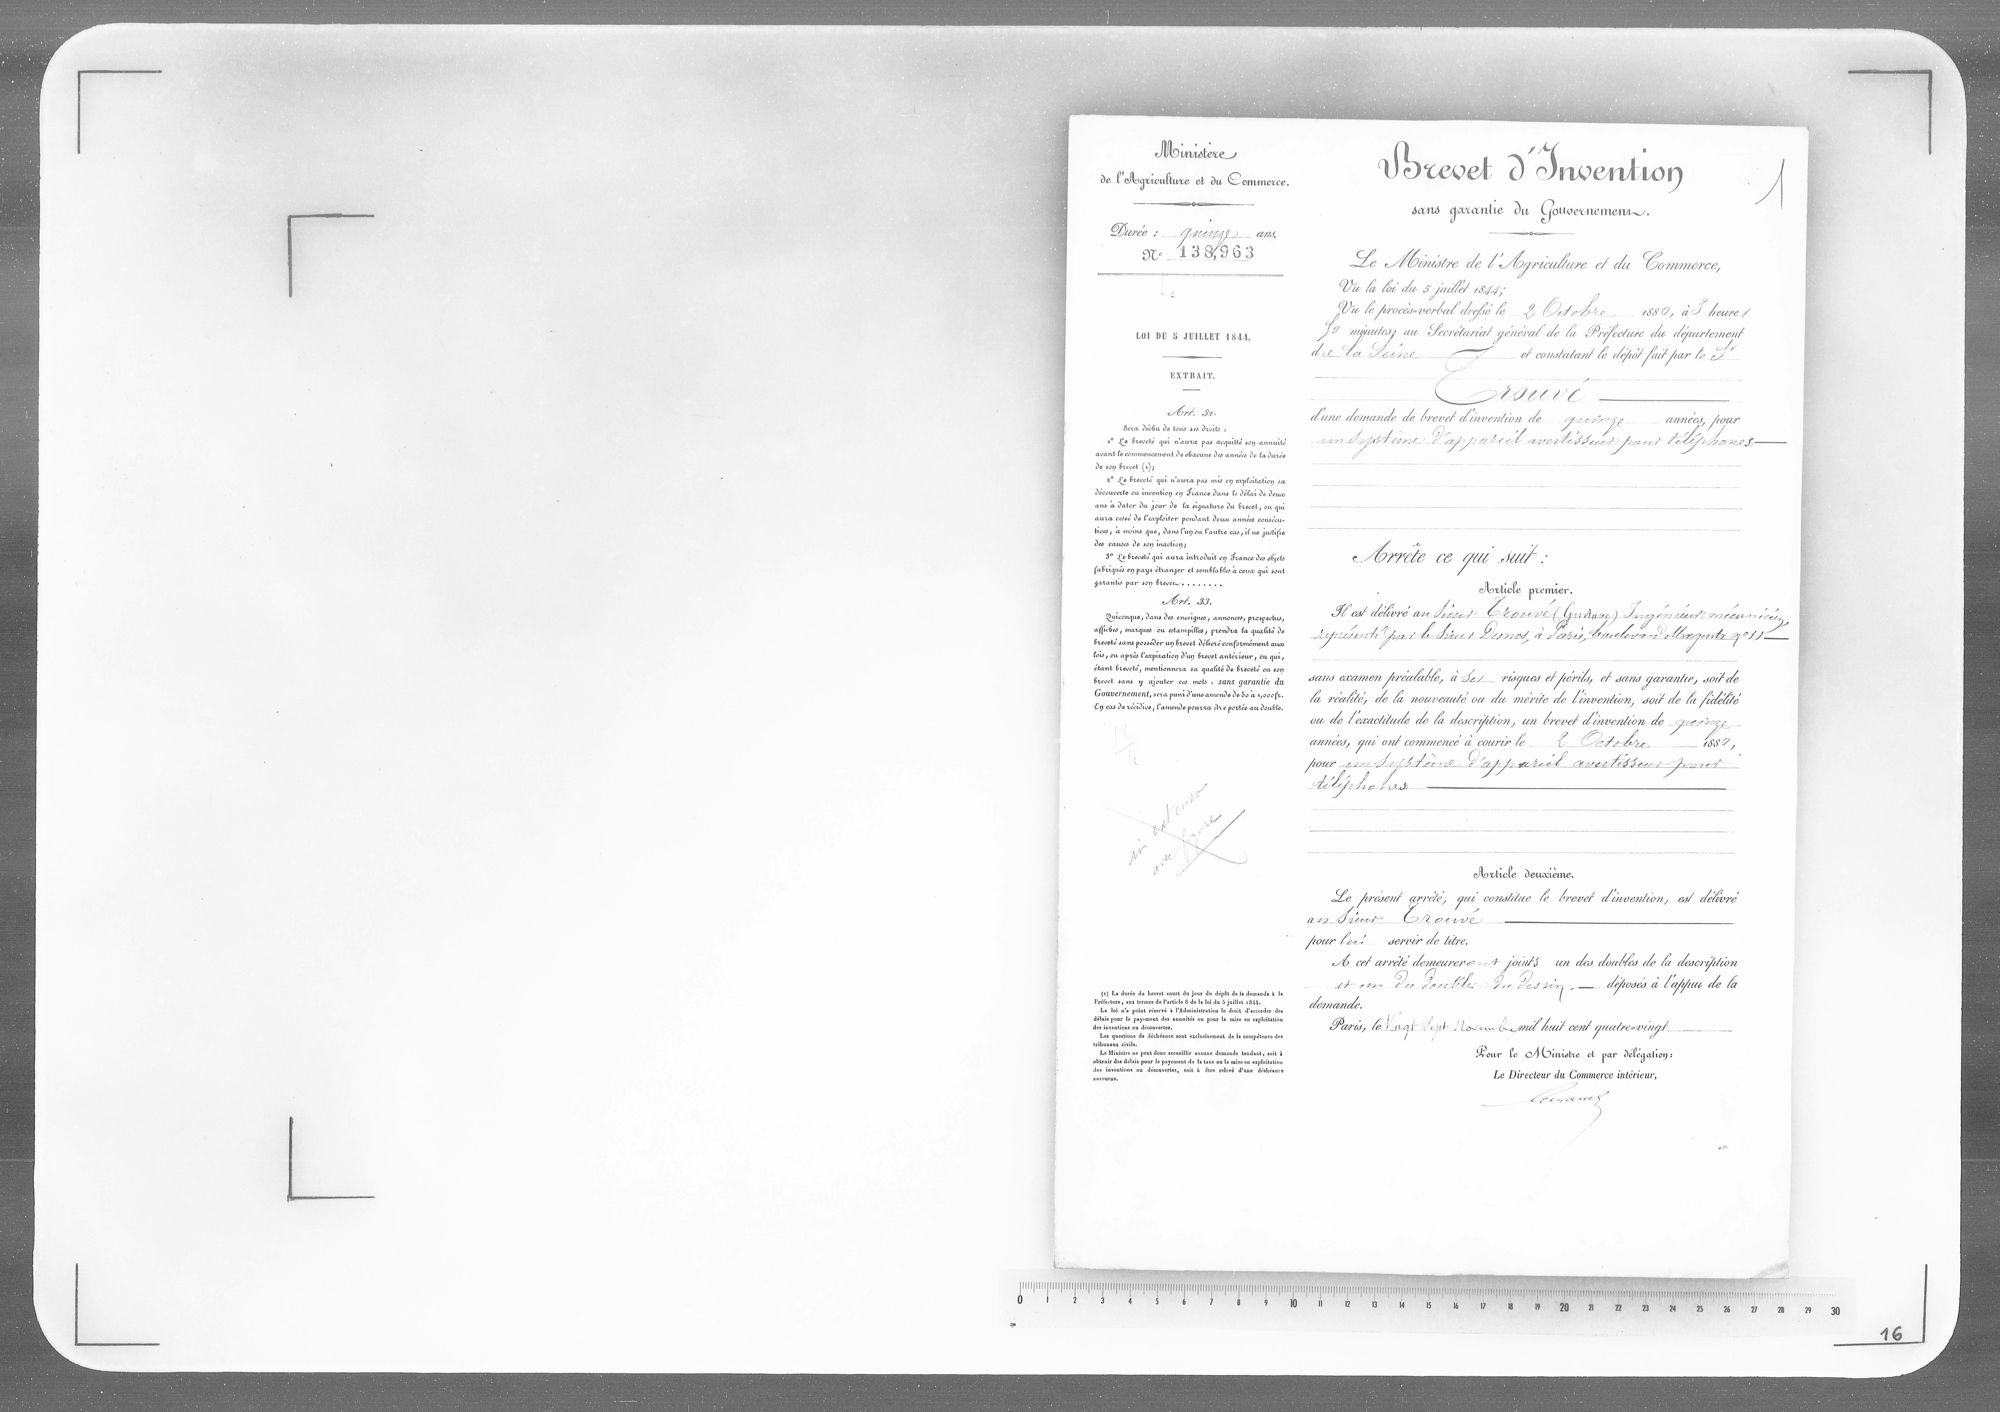 Ministère
de l'Agriculture et du Commerce.
Durée : quinze ans.
N° 138,963
LOI DU 5 JUILLET 1844.
EXTRAIT.
Art. 32.
Sera déchu de tous ses droits :
1° Le breveté qui n'aura pas acquitté son annuité
avant le commencement de chacune des années de la durée
de son brevet (1);
2° Le breveté qui n'aura pas mis en exploitation sa
découverte ou invention en France dans le délai de deux
ans à dater du jour de la signature du brevet, ou qui
aura cessé de l'exploiter pendant deux années consécu-
tives, à moins que, dans l'un ou l'autre cas, il ne justifie
des causes de son inaction;
3° Le breveté qui aura introduit en France des objets
fabriqués en pays étranger et semblables à ceux qui sont
garantis par son brevet........
Art. 33.
Quiconque, dans des enseignes, annonces, prospectus,
affiches, marques ou estampilles, prendra la qualité de
breveté sans posséder un brevet délivré conformément aux
lois, ou après l'expiration d'un brevet antérieur, ou qui,
étant breveté, mentionnera sa qualité de breveté ou son
brevet sans y ajouter ces mots : sans garantie du
Gouvernement, sera puni d'une amende de 50 à 1,000 fr.
En cas de récidive, l'amende pourra être portée au double.
in extenso
avec figure
(1) La durée du brevet court du jour du dépôt de la demande à la
Préfecture, aux termes de l'article 8 de la loi du 5 juillet 1844.
La loi n'a point réservé à l'Administration le droit d'accorder des
délais pour le payement des annuités ou pour la mise en exploitation
des inventions ou découvertes.
Les questions de déchéance sont exclusivement de la compétence des
tribunaux civils.
Le Ministre ne peut donc accueillir aucune demande tendant, soit à
obtenir des délais pour le payement de la taxe ou la mise en exploitation
des inventions ou découvertes, soit à être relevé d'une déchéance
encourue.
Brevet d'Invention
1
sans garantie du Gouvernement.
Le Ministre de l'Agriculture et du Commerce,
Vu la loi du 5 juillet 1844;
Vu le procès-verbal dressé le 2 Octobre 1880, à 3 heures
50 minutes, au Secrétariat général de la Préfecture du département
de la Seine et constatant le dépôt fait par le Sr
Trouvé
d'une demande de brevet d'invention de quinze années, pour
un système d'appareil avertisseur pour téléphones
Arrête ce qui suit :
Article premier.
Il est délivré au Sieur Trouvé (Gustave) Ingénieur mécanicien,
représenté par le Sieur Dumos, à Paris, boulevard Magenta n° 11
sans examen préalable, à ses risques et périls, et sans garantie, soit de
la réalité, de la nouveauté ou du mérite de l'invention, soit de la fidélité
ou de l'exactitude de la description, un brevet d'invention de quinze
années, qui ont commencé à courir le 2 Octobre 1880,
pour un système d'appareil avertisseur pour
téléphones
Article deuxième.
Le présent arrêté, qui constitue le brevet d'invention, est délivré
au Sieur Trouvé
pour lui servir de titre.
A cet arrêté demeureront joints un des doubles de la description
et un des doubles du dessin. — déposés à l'appui de la
demande.
Paris, le Vingt Sept Novembre mil huit cent quatre-vingt
Pour le Ministre et par délégation:
Le Directeur du Commerce intérieur,
0 1 2 3 4 5 6 7 8 9 10 11 12 13 14 15 16 17 18 19 20 21 22 23 24 25 26 27 28 29 30
16